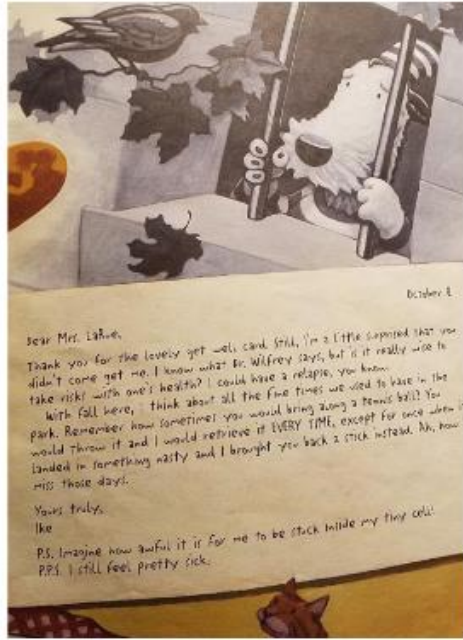 October 8
Dear Mrs. LaRue,
Thank you for the lovely get well card. Still, I'm a little surprised that you
didn't come get me. I know what Dr. Wilfrey says, but is it really wise to
take risks with one's health? I could have a relapse, you know.
With fall here, I think about all the fine times we used to have in the
park. Remember how sometimes you would bring along a tennis ball? You
would throw it and I would retrieve it EVERY TIME, except for once when it
landed in something nasty and I brought you back a stick instead. Ah, how I
miss those days.
Yours truly,
Ike
P.S. Imagine how awful it is for me to be stuck inside my tiny cell!
P.P.S. I still feel pretty sick.